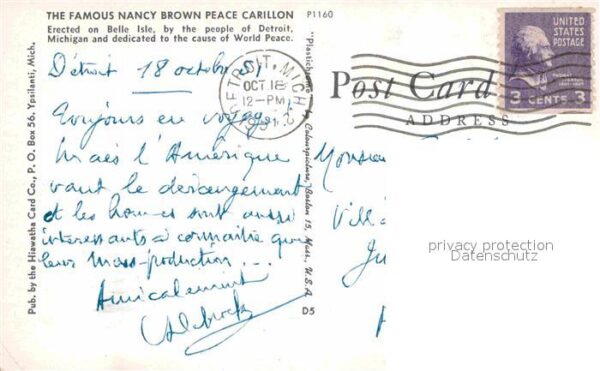 THE FAMOUS NANCY BROWN PEACE CARILLON
Erected on Belle Isle, by the people of Detroit,
Michigan and dedicated to the cause of World Peace.
P1160
Détroit 18 octobre 51
Toujours en voyage
Mais l'Amérique
vaut le dérangement
et les hommes sont aussi
interessants à connaitre que
leur mass-production ...
Amicalement
Pub. by the Hiawatha Card Co., P. O. Box 56, Ypsilanti, Mich.
"Plastichrome" by Colourpicture, Boston 15, Mass. U.S.A.
D5
DETROIT, MICH.
OCT 18
12-PM
1951
UNITED
STATES
POSTAGE
3 CENTS 3
Post Card
ADDRESS
Monsieu
Vill
Ju
privacy protection
Datenschutz